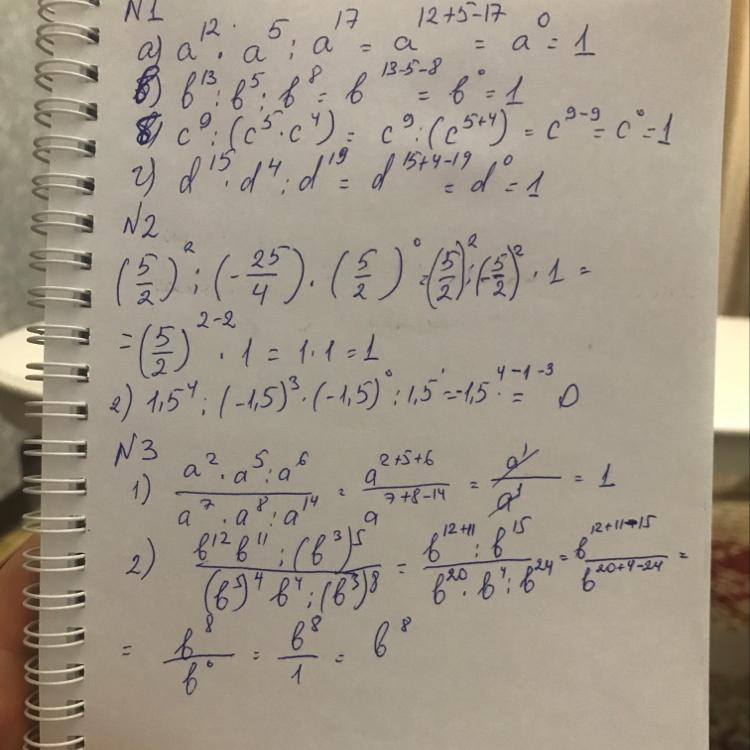 N1
а) a¹² · a⁵ : a¹⁷ = a¹²⁺⁵⁻¹⁷ = a⁰ = 1
б) b¹³ : b⁵ : b⁸ = b¹³⁻⁵⁻⁸ = b⁰ = 1
в) c⁹ : (c⁵ · c⁴) = c⁹ : (c⁵⁺⁴) = c⁹⁻⁹ = c⁰ = 1
г) d¹⁵ · d⁴ : d¹⁹ = d¹⁵⁺⁴⁻¹⁹ = d⁰ = 1
N2
(5/2)² : (-25/4) · (5/2)⁰ = (5/2)² : (-5/2)² · 1 =
= (5/2)²⁻² · 1 = 1 · 1 = 1
2) 1,5⁴ : (-1,5)³ · (-1,5)⁰ : 1,5¹ = -1,5⁴⁻¹⁻³ = 0
N3
1) (a² · a⁵ : a⁶)/(a⁷ · a⁸ : a¹⁴) = a²⁺⁵⁺⁶/a⁷⁺⁸⁻¹⁴ = a¹/a¹ = 1
2) (b¹²b¹¹ : (b³)⁵)/((b⁵)⁴ b⁴ : (b³)⁸) = (b¹²⁺¹¹ : b¹⁵)/(b²⁰ · b⁴ : b²⁴) = b¹²⁺¹¹⁻¹⁵/b²⁰⁺⁴⁻²⁴ =
= b⁸/b⁰ = b⁸/1 = b⁸